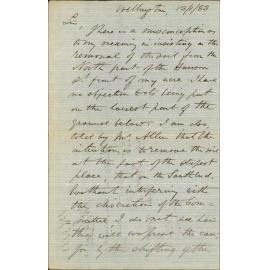 Wellington 12/1/83
Sir,
There is a misconception as
to my meaning in insisting on the
removal of the soil from the
North part of the Hanson
St front of my acre. I have
no objection to its being put
on the lowest part of the
ground below. I am also
told by Mr Allen that the
intention is to remove the soil
at the part of the steepest
place, that on the South end.
Without interfering with
the discretion of the Com-
mittee I do not see how
they will
by the shifting of the